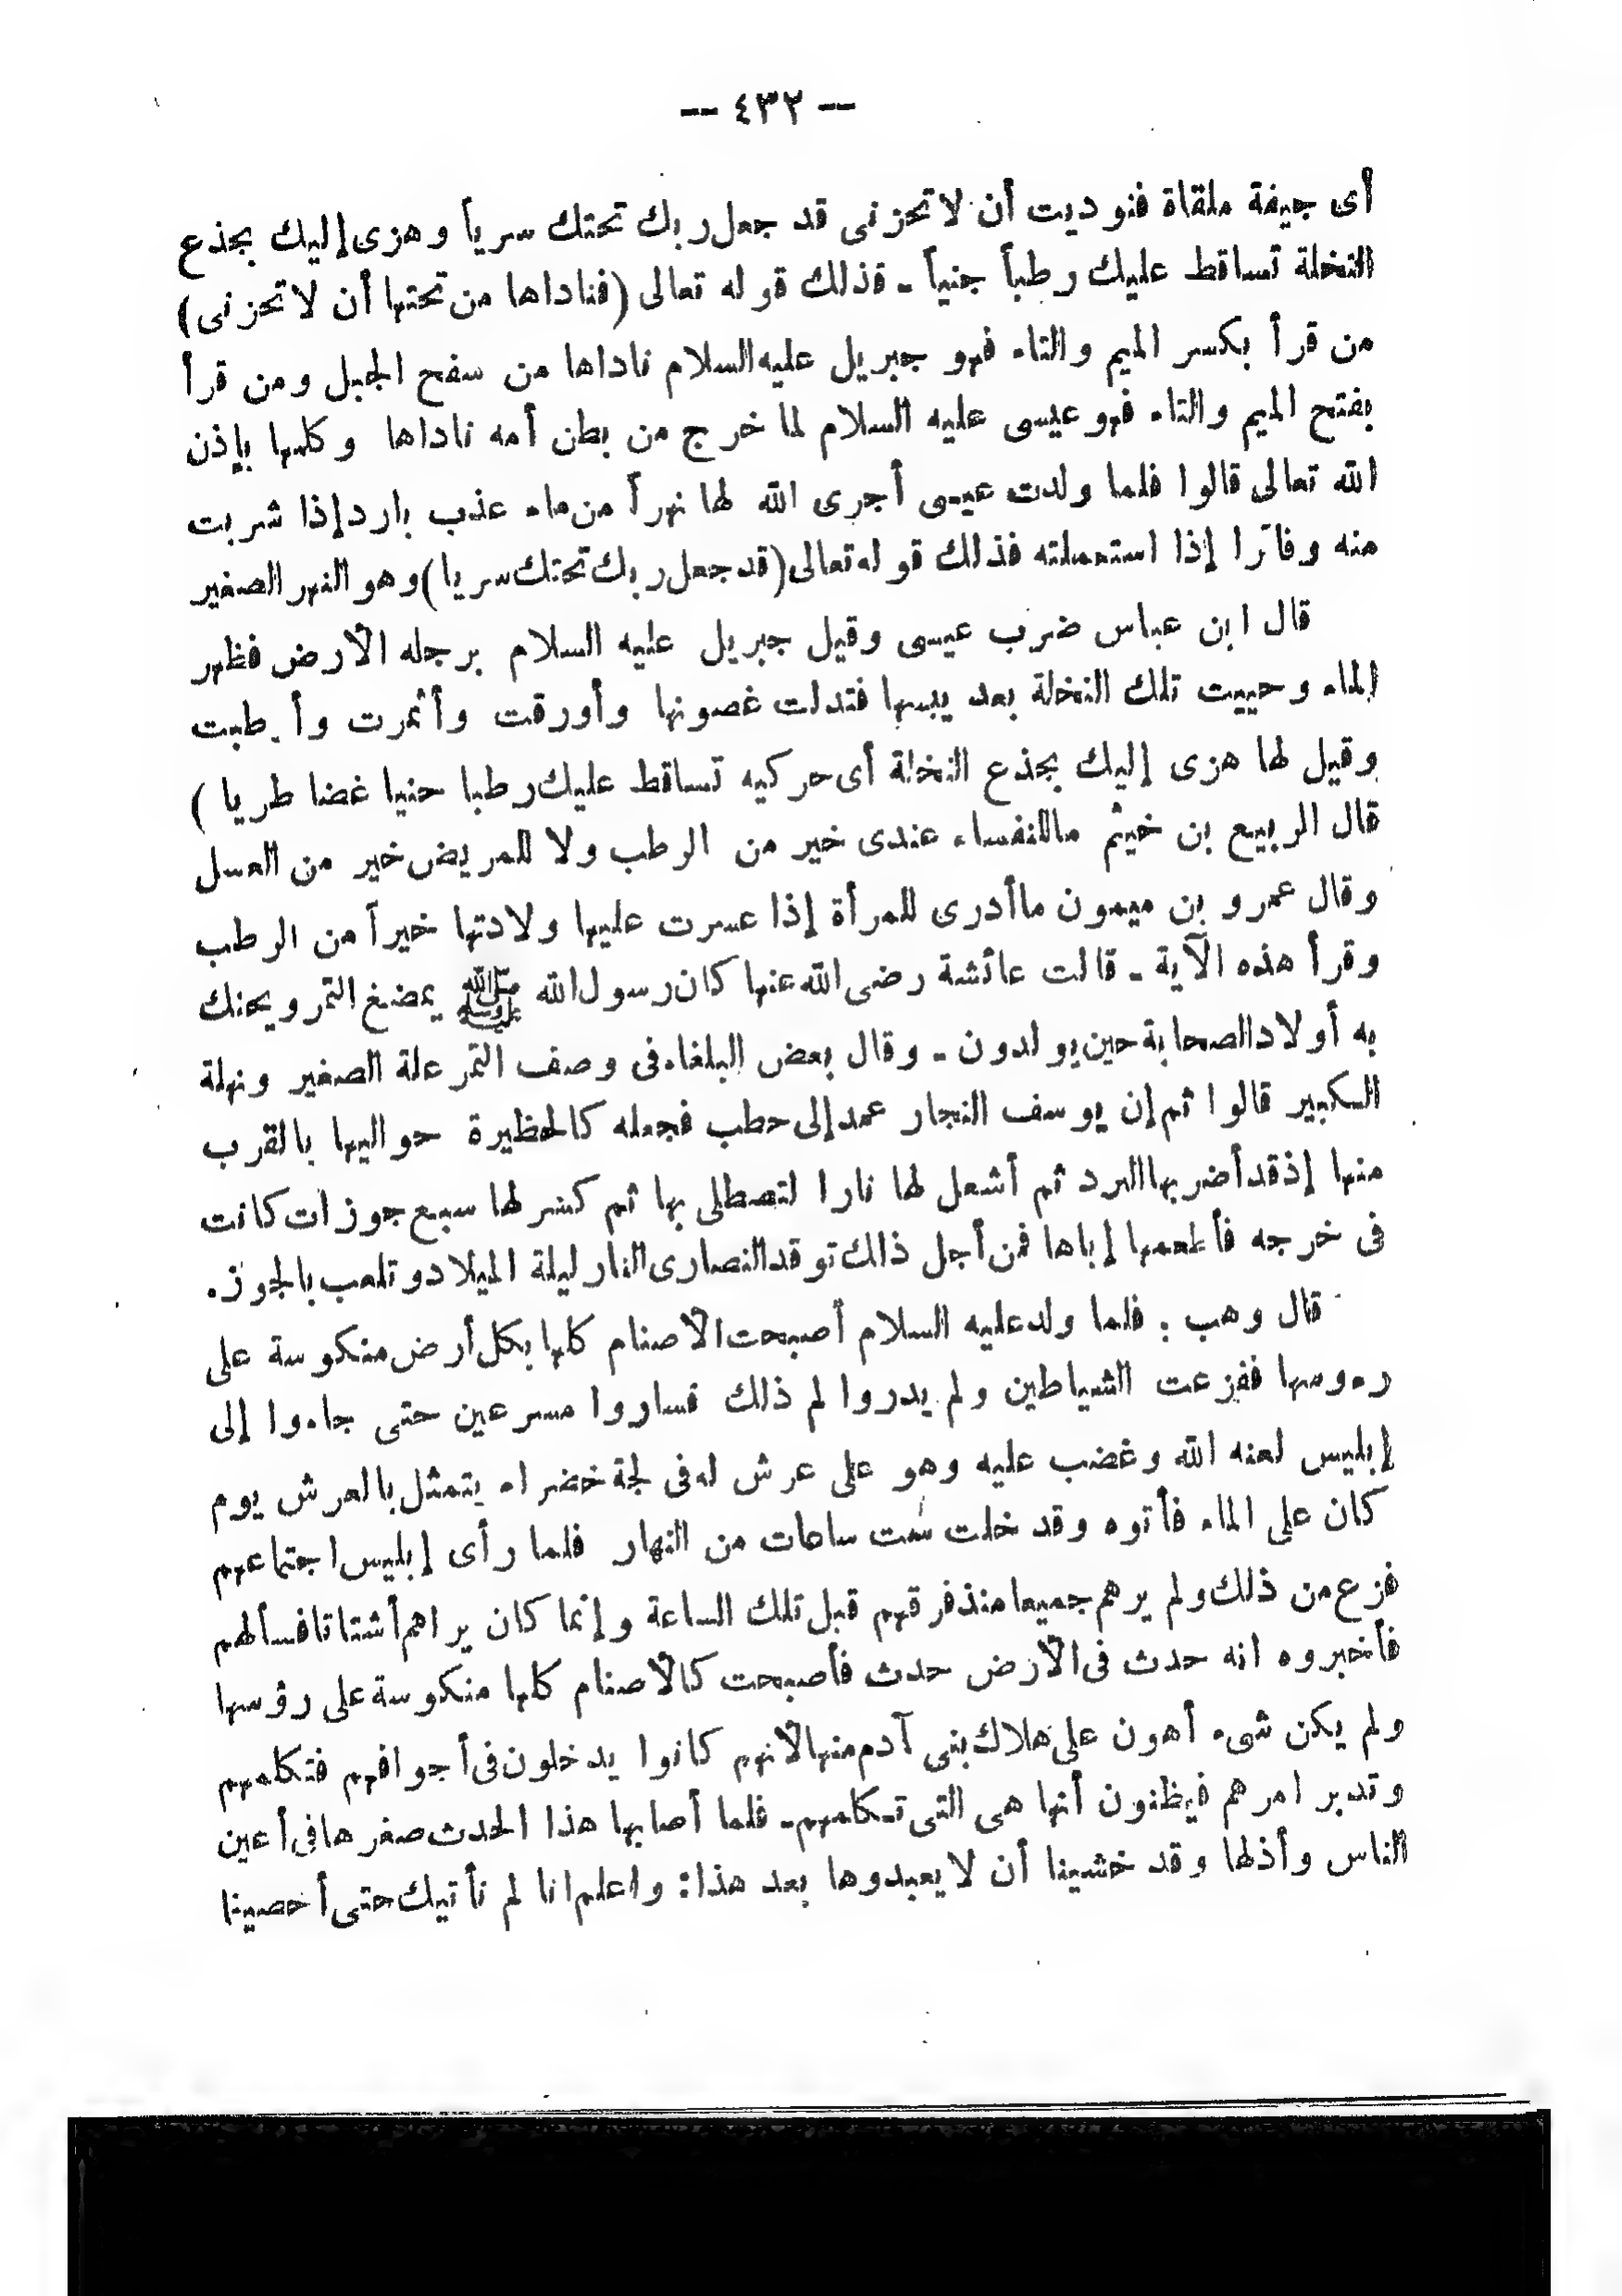 -- ٤٣٢ --
أى جيفة ملقاة فنوديت أن لاتحزنى قد جعل ربك تحتك سرياً وهزى إليك بجذع
النخلة تساقط عليك رطباً جنياً ـ فذلك قوله تعالى (فناداها من تحتها أن لاتحزنى)
من قرأ بكسر الميم والتاء فهو جبريل عليه السلام ناداها من سفح الجبل ومن قرأ
بفتح الميم والتاء فهو عيسى عليه السلام لما خرج من بطن أمه ناداها وكلمها بإذن
الله تعالى قالوا فلما ولدت عيسى أجرى الله لها نهراً من ماء عذب بارد إذا شربت
منه وفاترا إذا استعملته فذلك قوله تعالى (قد جعل ربك تحتك سريا) وهو النهر الصغير
قال ابن عباس ضرب عيسى وقيل جبريل عليه السلام برجله الأرض فظهر
الماء وحييت تلك النخلة بعد يبسها فتدلت غصونها وأورقت وأثمرت وأرطبت
وقيل لها هزى إليك بجذع النخلة أى حركيه تساقط عليك رطبا جنيا غضا طريا )
قال الربيع بن خيثم ماللنفساء عندى خير من الرطب ولا للمريض خير من العسل
وقال عمرو بن ميمون ماأدرى للمرأة إذا عسرت عليها ولادتها خيراً من الرطب
وقرأ هذه الآية ـ قالت عائشة رضى الله عنها كان رسول الله ﷺ يمضغ التمر ويحنك
به أولاد الصحابة حين يولدون ـ وقال بعض البلغاء فى وصف التمر علة الصغير ونهلة
الكبير قالوا ثم إن يوسف النجار عمد إلى حطب فجعله كالحظيرة حواليها بالقرب
منها إذ قد أضر بها البرد ثم أشعل لها نارا لتصطلى بها ثم كسر لها سبع جوزات كانت
فى خرجه فأطعمها إباها فمن أجل ذلك توقد النصارى النار ليلة الميلاد وتلعب بالجوز.
قال وهب : فلما ولد عليه السلام أصبحت الأصنام كلها بكل أرض منكوسة على
رءوسها ففزعت الشياطين ولم يدروا لم ذلك فساروا مسرعين حتى جاءوا إلى
إبليس لعنه الله وغضب عليه وهو على عرش له فى لجة خضراء يتمثل بالعرش يوم
كان على الماء فأتوه وقد خلت ست ساعات من النهار فلما رأى إبليس اجتماعهم
فزع من ذلك ولم يرهم جميعا منذ فرقهم قبل تلك الساعة وإنما كان يراهم أشتاتا فسألهم
فأخبروه انه حدث فى الأرض حدث فأصبحت كالأصنام كلها منكوسة على رؤسها
ولم يكن شىء أهون على هلاك بنى آدم منها لأنهم كانوا يدخلون فى أجوافهم فتكلمهم
وتدبر امرهم فيظنون أنها هى التى تكلمهم ـ فلما أصابها هذا الحدث صغرها فى أعين
الناس وأذلها وقد خشينا أن لايعبدوها بعد هذا: واعلم انا لم نأتيك حتى أحصينا